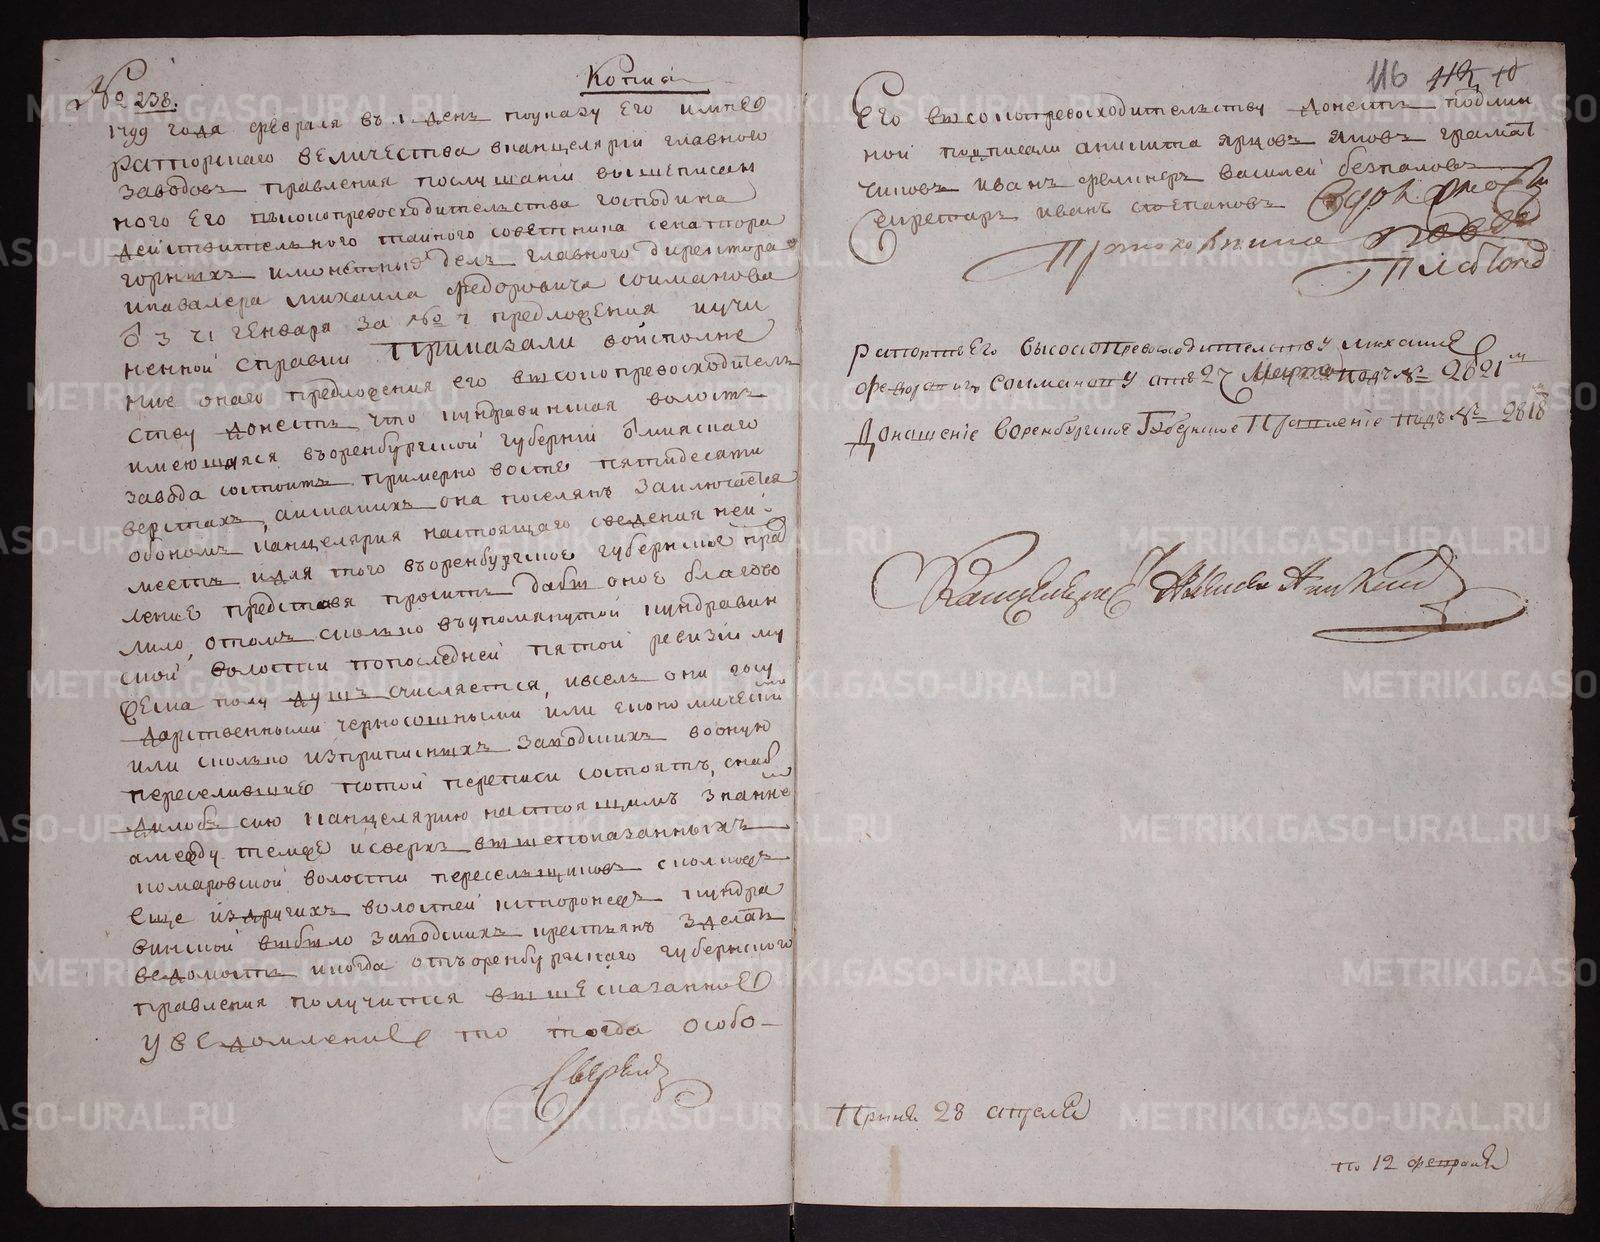 Копиа
№ 238.
1799 года февраля въ 1 день поуказу Его импе
раторскаго величества вканцелярiи главного
заводовъ правления послушанiи вышеписан
ного Его высокопревосходителства господина
действителного тайного советника сенатора
горныхъ имонетныхъ делъ главного директора
икавалера михаила федоровича соиманова
о 31 генваря за № 7 предложения иучи
ненной справки приказали воисполне
ние онаго предложения его высокопревосходителъ
ству донесть что кундравинская волость
имеющаяся воренбургской губернiи о миясскаго
завода состоитъ примерно восте пятидесяти
верстахъ, аискакихъ она поселянъ заключается
обономъ канцелярия настоящаго сведения неи
меетъ идля того воренбургское губернское прав
ление представя проситъ дабы оное благово
лило, отомъ сколко въупомянутой кундравин
ской волости попоследней пятой ревизiи му
жеска полу душъ счисляется, ивселъ они госу
дарственными черносошными или економически
или сколко изприписныхъ заводскихъ воную
переселившие потой переписи состоятъ, снаб
дилобъ сию канцелярию настоящимъ знание
амежду темже исверхъ вышепоказанныхъ
комаровской волости переселъщиковъ сколкожъ
еще издругихъ волостей исторонежъ кундра
винской выбыло заводскихъ крестьянъ зделать
ведомость икогда отъоренбургскаго губернского
правления получится вышесказанное
уведомление то тогда особо
Сверилъ
116
Его высокопревосходителству донесть подлин
ной подписали аникита ярцовъ яковъ грамат
чиковъ иванъ фелкнеръ василей безпаловъ
Секретарь иванъ степановъ
Протоколиста
рапортъ Его высокопревосходителству михаиле
федоровичъ Соиманову от 27 Марта подъ № 2621м
Доношение Воренбургское Губернское Правление подъ № 2818
Канцелярист
Приня. 28 апреля
по 12 февраля